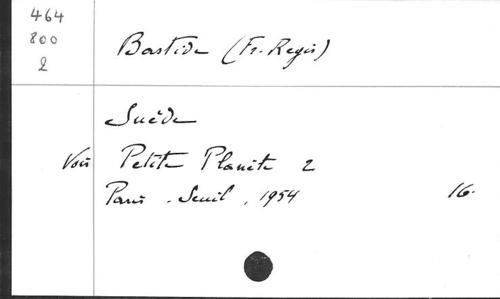 464
800
2
Bastide (Fr. Regis)
Suède
Voir Petite Planète 2
Paris. Seuil, 1954 16.